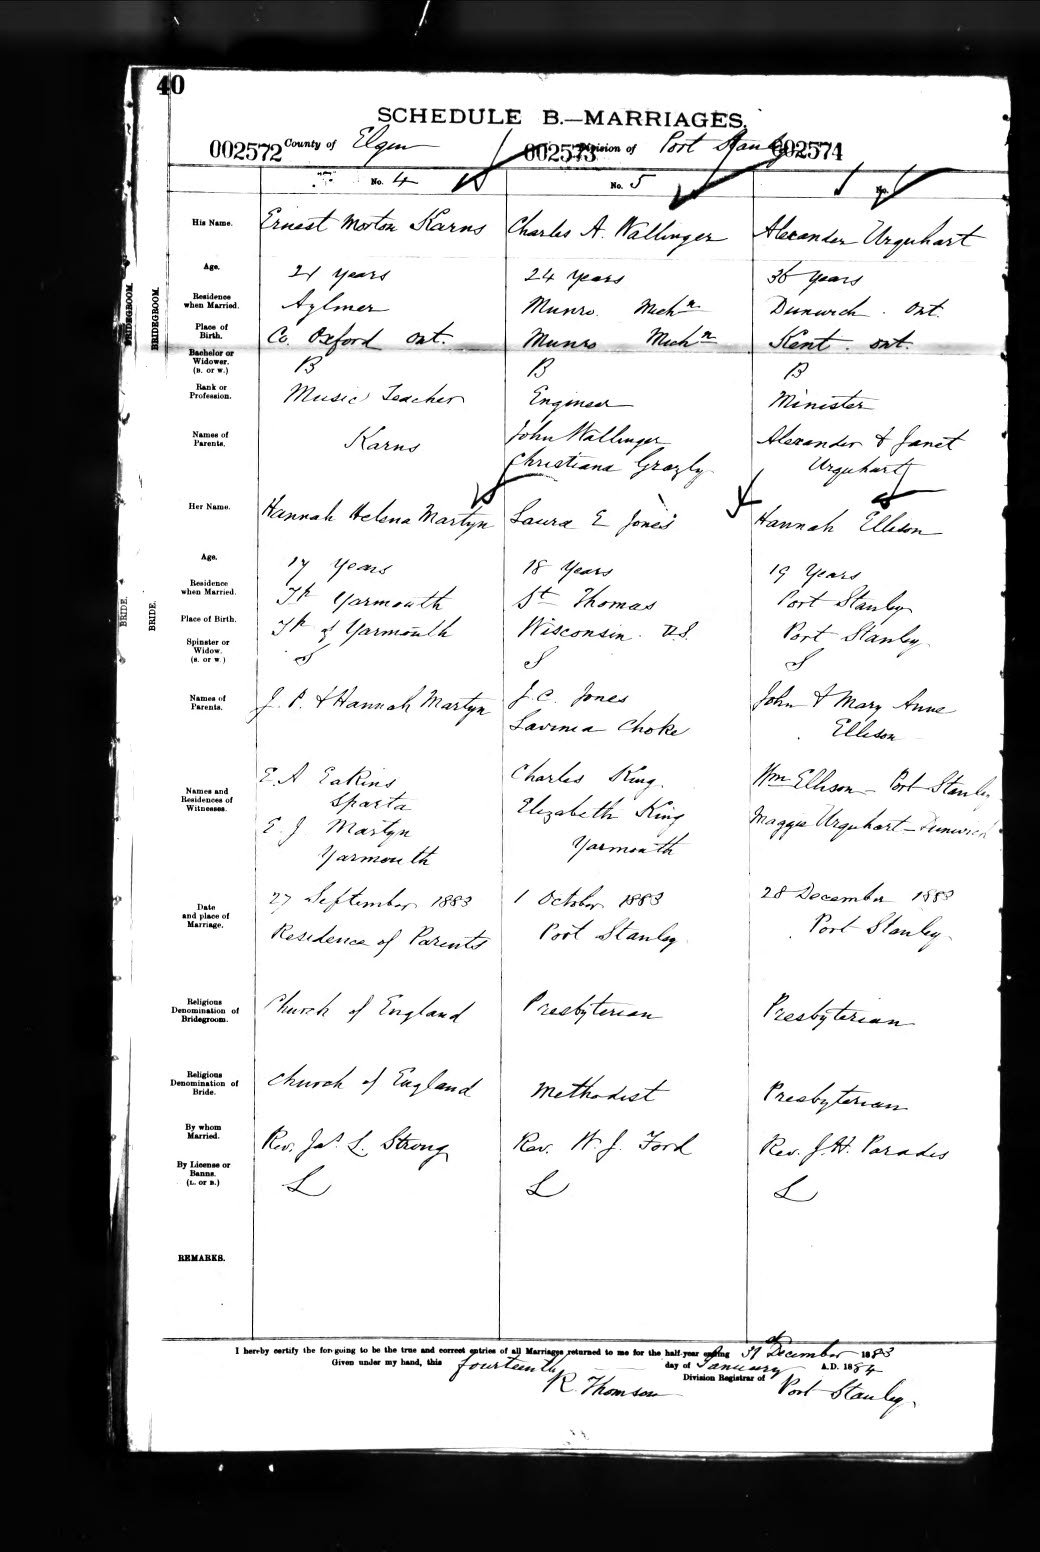 40
SCHEDULE B.—MARRIAGES.
002572 County of Elgin 002573 Division of Port Stanley 002574
No. 4 No. 5 No.
BRIDEGROOM. BRIDEGROOM.
His Name. Ernest Morton Karns Charles A. Wallinger Alexander Urquhart
Age. 21 years 24 years 36 years
Residence when Married. Aylmer Munro. Mich<sup>n</sup> Dunwich. Ont.
Place of Birth. Co. Oxford Ont. Munro Mich<sup>n</sup> Kent. Ont.
Bachelor or Widower. (B. or W.) B B B
Rank or Profession. Music Teacher Engineer Minister
Names of Parents. Karns John Wallinger Alexander & Janet
Christiana Urquhart
BRIDE. BRIDE.
Her Name. Hannah Helena Martyn Laura E Jones Hannah Ellison
Age. 17 Years 18 Years 19 Years
Residence when Married. Tp Yarmouth St Thomas Port Stanley
Place of Birth. Tp of Yarmouth Wisconsin. U.S. Port Stanley
Spinster or Widow. (S. or W.) S S S
Names of Parents. J. P. & Hannah Martyn J. C. Jones John & Mary Anne
Lavinia Choke Ellison
Names and Residences of Witnesses. E. A Eakins Charles King Wm Ellison - Port Stanley
Sparta Elizabeth King Maggie Urquhart - Dunwich
E. J. Martyn Yarmouth
Yarmouth
Date and place of Marriage. 27 September 1883 1 October 1883 28 December 1883
Residence of Parents Port Stanley Port Stanley
Religious Denomination of Bridegroom. Church of England Presbyterian Presbyterian
Religious Denomination of Bride. Church of England Methodist Presbyterian
By whom Married. Rev. Jas. L. Strong Rev. W. J. Ford Rev. J. H. Paradis
By License or Banns. (L. or B.) L L L
REMARKS.
I hereby certify the forgoing to be the true and correct entries of all Marriages returned to me for the half-year ending 31st December 1883
Given under my hand, this fourteenth day of January A.D. 1884
R. Thomson Division Registrar of Port Stanley